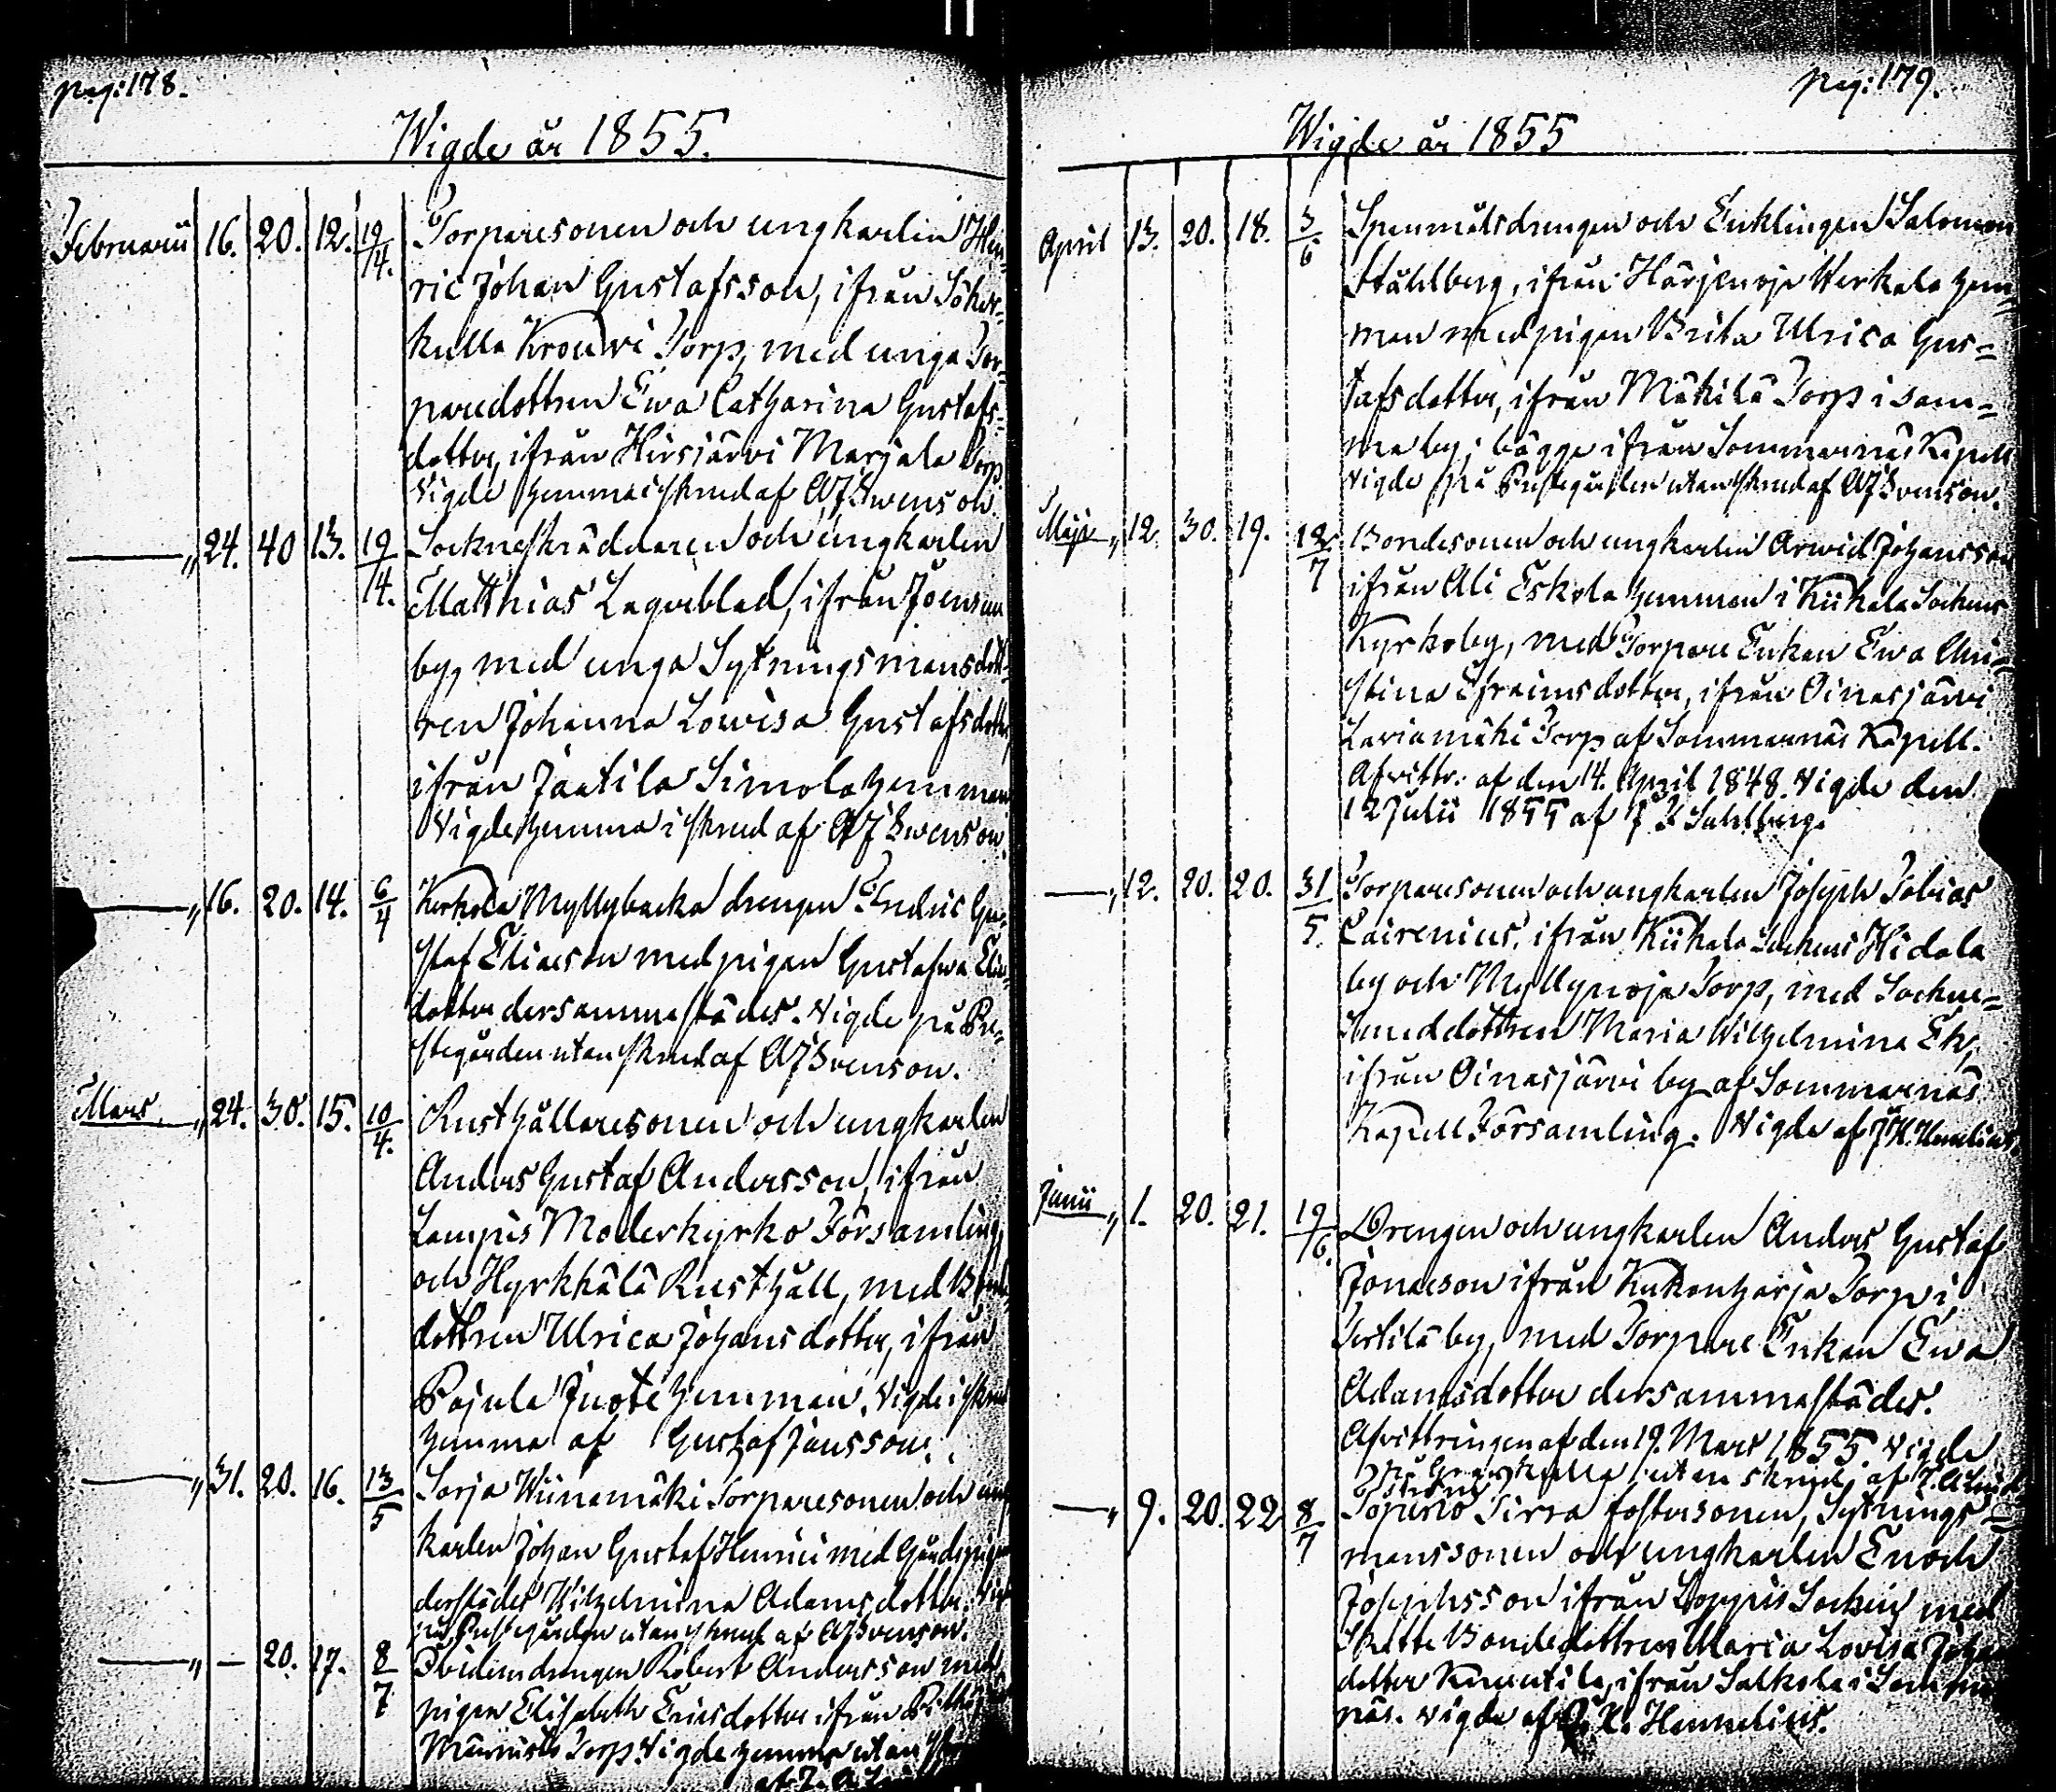 pag: 178.
Wigde år 1855.
Februarii 16. 20. 12. 19/4. Torparesonen och ungkarlen Hen=
ric Johan Gustafsson, ifrån
kulla Krouvi Torp, med unga Tor=
paredottren Ewa Catharina Gustafs=
dotter, ifrån Hirsjärvi Marjala Torp
Vigde hemma i skrud af A J Svenson.
—„ 24. 40 13. 19/4. Sockneskräddaren och ungkarlen
Matthias Lagerblad, ifrån Joensuu
by, med unga Sytningsmansdott=
ren Johanna Lowisa Gustafsdotter,
ifrån Jaatila Simola hemman
Vigde hemma i skrud af A J Svenson.
—„ 16. 20. 14. 6/4 Kerkola Myllybacka drengen Fredric Gu=
staf Eliasson med pigan Gustafva Elias
dotter dersammastädes. Vigde på Pre=
stegården utan skrud af A J Svenson.
Mars „ 24. 30. 15. 10/4. Rusthållaresonen och ungkarlen
Anders Gustaf Andersson, ifrån
Lampis Moderkyrko Församling,
och Hyrkkälä Rusthåll, med Bonde
dottren Ulrica Johansdotter, ifrån
Pajula Juoti hemman. Vigde i skrud
hemma af Gustaf Jansson.
—„ 31. 20. 16. 13/5 Sarja Wiinamäki Torparesonen och ung
karlen Johan Gustaf Henrici med Gårdspigan
derstädes Wilhelmina Adamsdotter. Vigde
på Prestegården utan skrud af A J Svenson.
—„ — 20. 17. 8/7 drengen Robert Andersson med
pigan Elisabeth Ericsdotter ifrån
Torp. Vigde hemma utan
pag: 179.
Wigde år 1855
April 13. 20. 18. 3/6 Spanmålsdrengen och Enklingen Salomon
Ståhlberg, ifrån Härjenoja Werkala hem=
man med pigan Brita Ulrica Gus=
tafsdotter, ifrån Mäkilä Torp i sam=
ma by; bägge ifrån Sommarnäs Kapell
Vigde på Prestegården utan skrud af A J Svenson.
Maji „ 12. 30. 19. 12/7 Bondesonen och ungkarlen Arvid Johansson
ifrån Ali Eskola hemman i Kiikala Sockens
Kyrkoby, med Torpare Enkan Ewa Chri=
stina Efraimsdotter, ifrån Oinasjärvi
Laviamäki Torp af Sommarnäs Kapell.
Afvittr. af den 14. April 1848. Vigde den
12 Julii 1855 af F F Sahlberg.
—„ 12. 20. 20. 31/5. Torparesonen och ungkarlen Joseph Tobias
Cairenius, ifrån Kiikala Sockens Hidola
by och Myllynoja Torp, med Sockne=
smeddottren Maria Wilhelmina Ek,
ifrån Oinasjärvi by af Sommarnäs
Kapell Församling. Vigde af J K. Hemelius.
Junii „ 1. 20. 21. 19/6. Drengen och ungkarlen Anders Gustaf
Jonasson ifrån Kukonharja Torp i
by, med Torpare Enkan Ewa
Adamsdotter dersammastädes.
Afvittringen af den 19. Mars 1855. Vigde
utan skrud af
—„ 9. 20. 22 8/7 Sirra fostersonen, Sytnings=
manssonen och ungkarlen Enoch
Josephsson ifrån Loppis Socken med
Skatte Bondedottren Maria Lovisa Johans
dotter ifrån Salkola i Sommar
näs. Vigde af J. K. Hemelius.